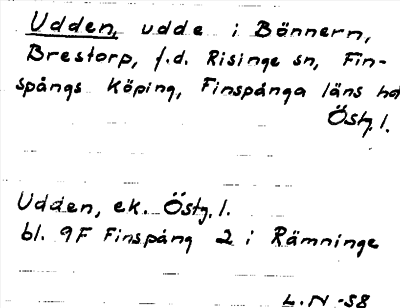 Udden, udde i Bönnern,
Brestorp, f.d. Risinge sn, Fin-
spångs köping, Finspånga läns hd
Östg. l.
Udden, ek. Östg. l.
bl. 9F Finspång 2 i Rämninge
L. N -58